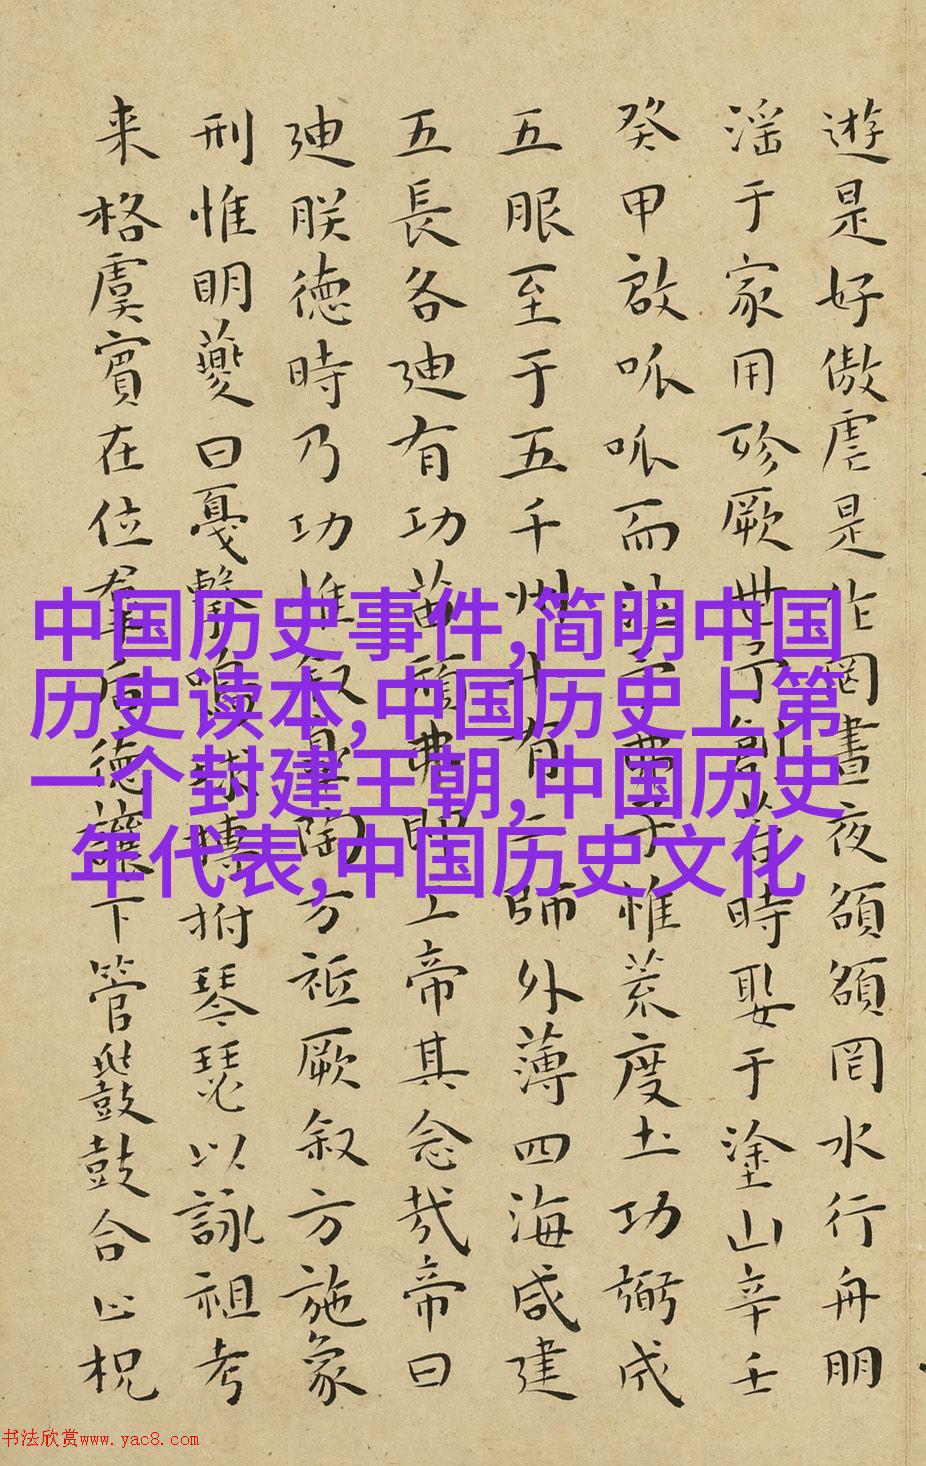 遊是好傲虐是作罔晝夜頟頟罔水行舟朋
淫于家用殄厥世予創若時娶于塗山辛壬
癸甲啟呱呱而泣予弗子惟荒度土功弼成
五服至于五千州十有二師外薄四海咸建
五長各迪有功苗頑弗即工帝其念哉帝曰
迪朕德時乃功惟叙皋陶方祗厥叙方施象
刑惟明夔曰戛擊鳴球搏拊琴瑟以詠祖考
来格虞賓在位羣后德讓下管鼗鼓合止柷
中国历史事件,简明中国
历史读本,中国历史上第
一个封建王朝,中国历史
年代表,中国历史文化
书法欣赏www.yac8.com